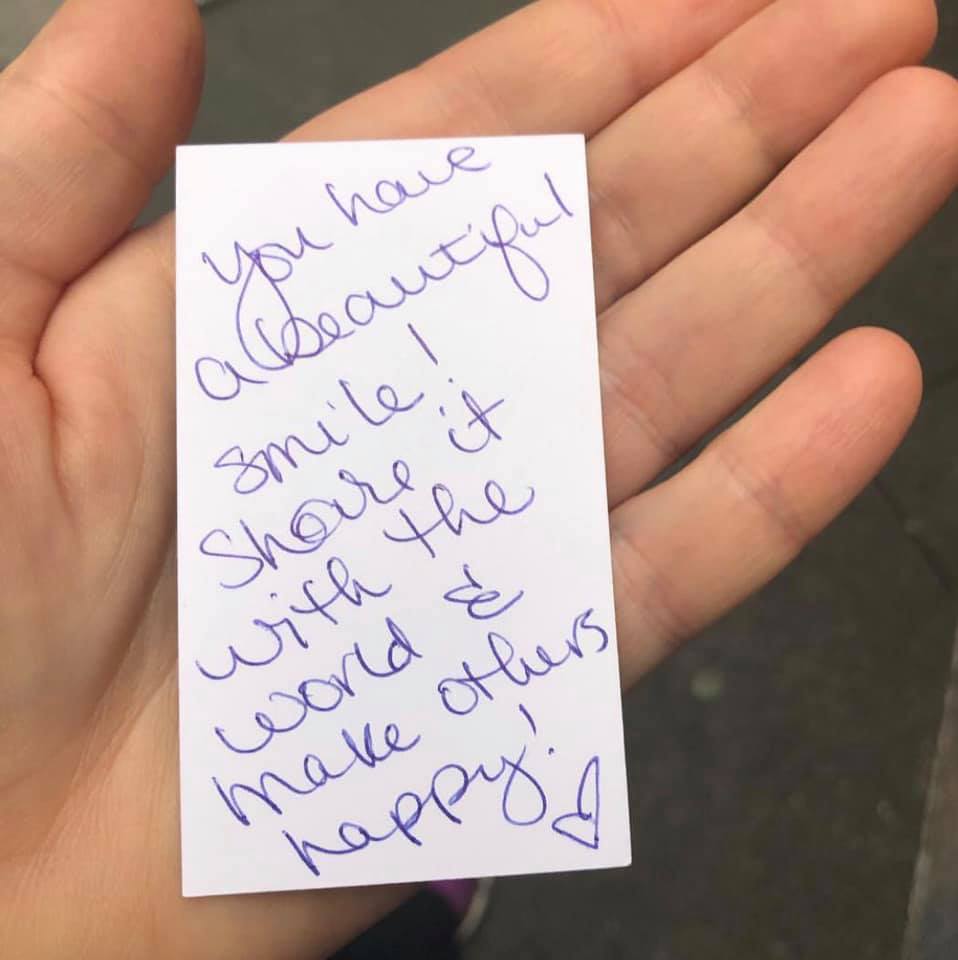 you have
a beautiful
smile!
Share it
with the
world &
make others
happy!